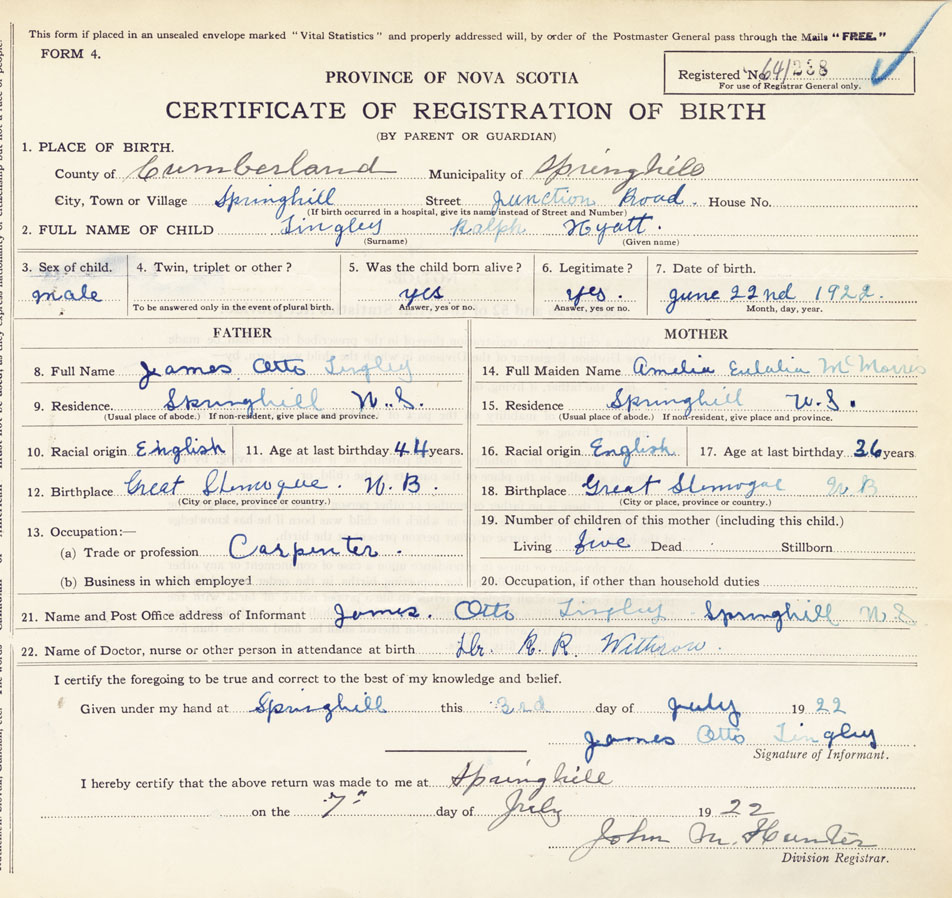 This form if placed in an unsealed envelope marked "Vital Statistics" and properly addressed will, by order of the Postmaster General pass through the Mails "FREE."
FORM 4.
Registered No. 64/238
For use of Registrar General only.
PROVINCE OF NOVA SCOTIA
CERTIFICATE OF REGISTRATION OF BIRTH
(BY PARENT OR GUARDIAN)
1. PLACE OF BIRTH.
County of Cumberland Municipality of Springhill
City, Town or Village Springhill Street Junction Road. House No.
(If birth occurred in a hospital, give its name instead of Street and Number)
2. FULL NAME OF CHILD Tingley Ralph Hyatt.
(Surname) (Given name)
3. Sex of child. 4. Twin, triplet or other? 5. Was the child born alive? 6. Legitimate? 7. Date of birth.
male yes yes. June 22nd 1922.
To be answered only in the event of plural birth. Answer, yes or no. Answer, yes or no. Month, day, year.
FATHER MOTHER
8. Full Name James Otto Tingley 14. Full Maiden Name Amelia Eulalia McMorris
9. Residence. Springhill N.S. 15. Residence Springhill N.S.
(Usual place of abode.) If non-resident, give place and province. (Usual place of abode.) If non-resident, give place and province.
10. Racial origin English 11. Age at last birthday 44 years. 16. Racial origin English 17. Age at last birthday 36 years
12. Birthplace Great Shemogue. N.B. 18. Birthplace Great Shemogue N B
(City or place, province or country.) (City or place, province or country.)
13. Occupation:— 19. Number of children of this mother (including this child.)
(a) Trade or profession Carpenter. Living five Dead Stillborn
(b) Business in which employed 20. Occupation, if other than household duties
21. Name and Post Office address of Informant James. Otto Tingley Springhill N.S.
22. Name of Doctor, nurse or other person in attendance at birth Dr. R. R. Withrow.
I certify the foregoing to be true and correct to the best of my knowledge and belief.
Given under my hand at Springhill this 3rd day of July 1922
James Otto Tingley
Signature of Informant.
I hereby certify that the above return was made to me at Springhill
on the 7th day of July 1922
John M. Hunter
Division Registrar.